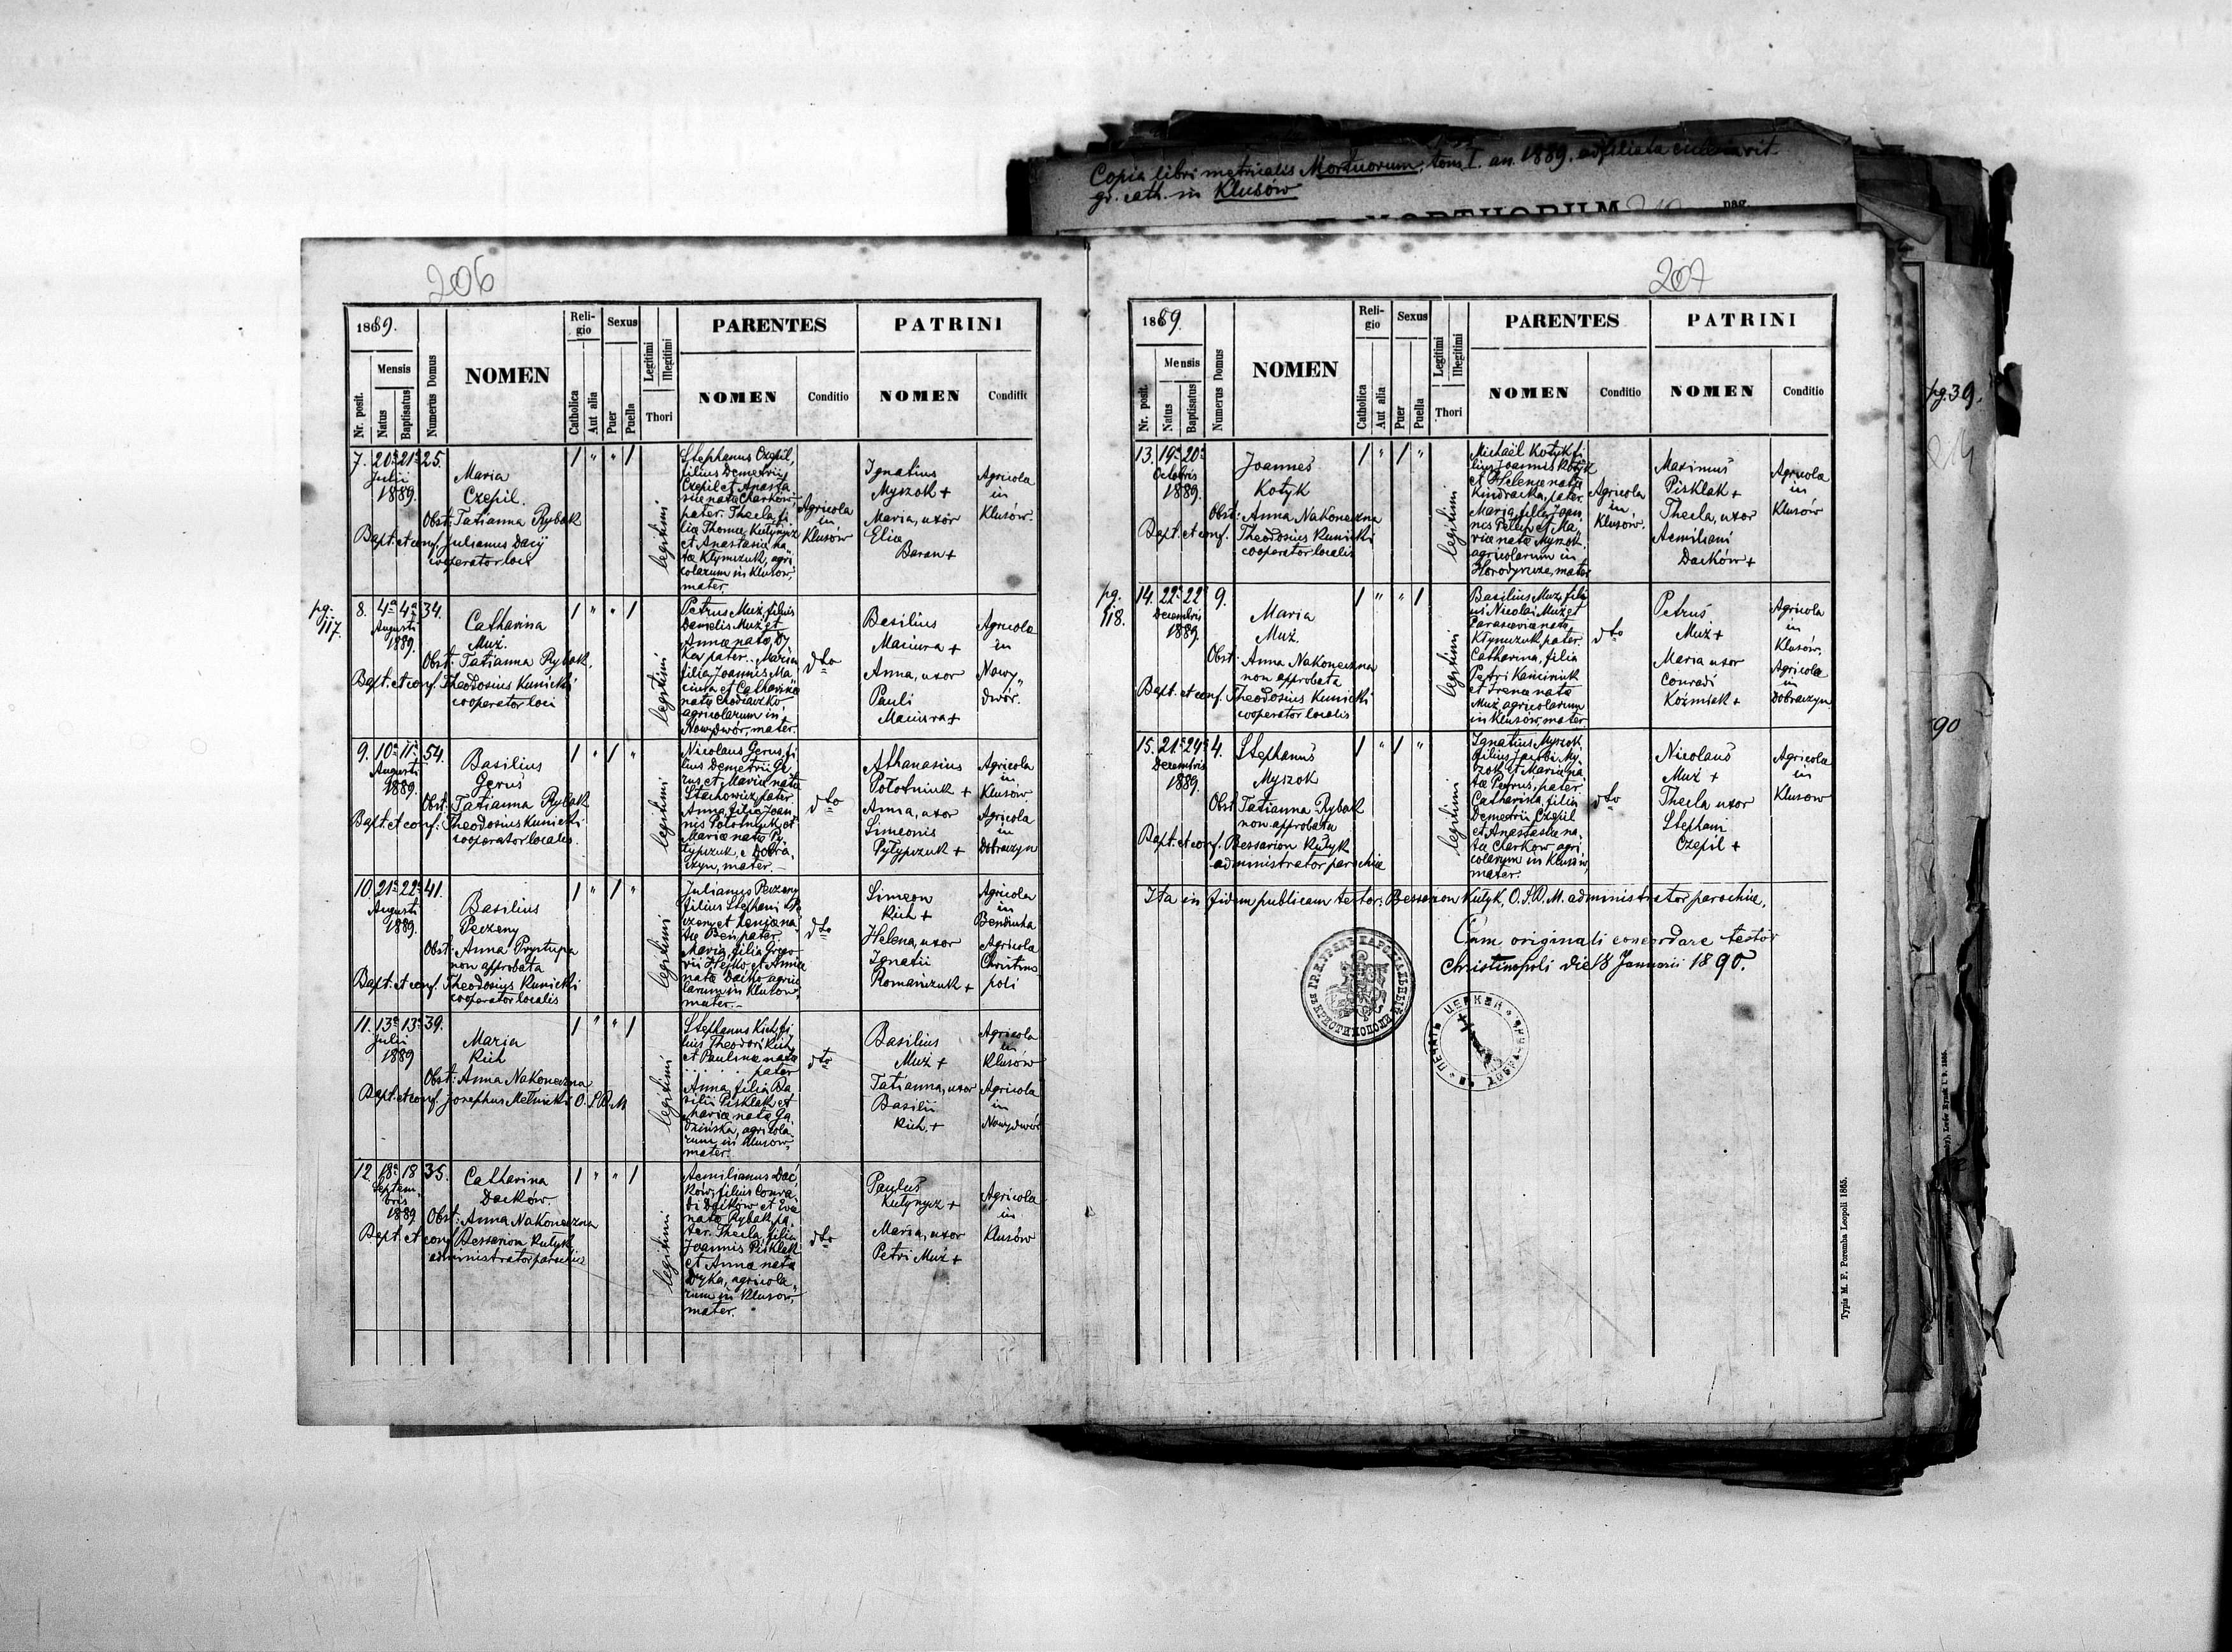 Copia libri metricalis Mortuorum, tom. I. an. 1889. ad filiata ecclesia rit.
gr. cath. in Klusów
pag.
206
1889.
Nr. posit.
Mensis
Natus
Baptisatus
Numerus Domus
NOMEN
Religio
Catholica
Aut alia
Sexus
Puer
Puella
Legitimi
Illegitimi
Thori
PARENTES
NOMEN
Conditio
PATRINI
NOMEN
Conditio
7. 20a 21a 25.
Julii
1889.
Maria
Czepil.
Obst: Tatianna Rybak
Bapt. et conf. Julianus Dacij
cooperator loci
1 " " 1
legitimi
Stephanus Czepil,
filius Demetrius
Czepil et Anasta
siæ nata Charków,
pater. Thecla fi
lia Thomæ Kutynycz
et Anastasiæ na
tæ Kłymczuk, agri
colarum in Klusów,
mater.
Agricola
in
Klusów
Ignatius
Myszok +
Maria, uxor
Eliæ
Baran +
Agricola
in
Klusów.
pg.
117.
8. 4a 4a 34.
Augusti
1889.
Catharina
Muż.
Obst: Tatianna Rybak.
Bapt. et conf. Theodosius Kunicki
cooperator loci
1 " " 1
legitimi
Petrus Muż, filius
Danielis Muż et
Annæ nata Dy
ka pater. Maria
filia Joannis Ma
ciura et Catharinæ
nata Chodaczko
agricolarum in
Nowydwór, mater.
dto
Basilius
Maciura +
Anna, uxor
Pauli
Maciura +
Agricola
in
Nowy„
dwór.
9. 10a 11a 54.
Augusti
1889.
Basilius
Geruś
Obst: Tatianna Rybak
Bapt. et conf: Theodosius Kunicki
cooperator localis.
1 " 1 "
legitimi
Nicolaus Gerus, fi
lius Demetrii Ge
rus et Mariæ nata
Stachowicz, pater.
Anna filia Joan
nis Połotniuk et
Mariæ nata Py
łypczuk, e Dobra„
czyn, mater.
dto
Athanasius
Połotniuk +
Anna, uxor
Simeonis
Pyłypczuk +
Agricola
in
Klusów
Agricola
in
Dobraczyn
10. 21a 22a 41.
Augusti
1889.
Basilius
Peczeny
Obst: Anna Prystupa
non approbata
Bapt. et conf. Theodosius Kunicki
cooperator localis
1 " 1 "
legitimi
Julianus Peczeny
filius Stephani Pe
czeny et Xeniæ na
tæ Ben, pater.
Maria, filia Grego
rii Hejko, et Annæ
nata Dacko agrico
larum in Klusów,
mater.
dto
Simeon
Kich +
Helena, uxor
Ignatii
Romańczuk +
Agricola
in
Benduha
Agricola
Christino
poli
11. 13a 13a 39.
Julii
1889
Maria
Kich
Obst: Anna Nakoneczna
Bapt. et conf. Josephus Melnicki O. S. B. M
1 " " 1
legitimi
Stephanus Kich, fi
lius Theodori Kich
et Paulinæ nata
. . . . pater
Anna, filia Ba
silii Pisklak et
Mariæ nata Ga
dzińska, agricola
rum in Klusów,
mater.
dto
Basilius
Muż +
Tatianna, uxor
Basilii
Kich. +
Agricola
in
Klusów
Agricola
in
Nowydwór
12. 18a 18 35.
Septem
bris
1889
Catharina
Daćków
Obst: Anna Nakoneczna
Bapt. et conf Bessarion Kułyk
administrator parochiæ
1 " " 1
legitimi
Aemilianus Dać
ków, filius Conra
di Daćków et Evæ
nata Rybak, pa
ter. Thecla, filia
Joannis Pisklak
et Annæ nata
Dyka, agricola„
rum in Klusów,
mater.
dto
Paulus
Kutynycz +
Maria, uxor
Petri Muż +
Agricola
in
Klusów
207
1889.
Nr. posit.
Mensis
Natus
Baptisatus
Numerus Domus
NOMEN
Religio
Catholica
Aut alia
Sexus
Puer
Puella
Legitimi
Illegitimi
Thori
PARENTES
NOMEN
Conditio
PATRINI
NOMEN
Conditio
13. 19a 20a
Octobris
1889.
Joannes
Kotyk
Obst: Anna Nakoneczna
Bapt. et conf. Theodosius Kunicki
cooperator localis
1 " 1 "
legitimi
Michaël Kotyk fi
lius Joannis Kotyk
et Helenæ nata
Kindracka, pater.
Maria, filia Joan
nis Pełuj et Ma
riæ nata Myszok
agricolarum in
Horodyszcze, mater
Agricola
in
Klusów.
Maximus
Pisklak +
Thecla, uxor
Aemiliani
Daćków +
Agricola
in
Klusów
pg.
118.
14. 22a 22a 9.
Decembris
1889.
Maria
Muż.
Obst: Anna Nakoneczna
non approbata
Bapt. et conf. Theodosius Kunicki
cooperator localis
1 " " 1
legitimi
Basilius Muż, fili
us Nicolai Muż et
Parasceviæ nata
Kłymczuk pater.
Catharina, filia
Petri Kaminiuk
et Irenæ nata
Muż agricolarum
in Klusów, mater
dto
Petrus
Muż +
Maria uxor
Conradi
Koźmiak +
Agricola
in
Klusów.
Agricola
in
Dobraczyn
15. 21a 24a 4.
Decembris
1889.
Stephanus
Myszok
Obst: Tatianna Rybak
non approbata
Bapt. et conf. Bessarion Kułyk
administrator parochiæ
1 " 1 "
legitimi
Ignatius Myszok
filius Jacobi My
szok et Mariæ na
tæ Petruś, pater.
Catharina, filia
Demetrii Czepil
et Anastasiæ na„
tæ Charkow, agri
colarum in Klusów,
mater.
dto
Nicolaus
Muż +
Thecla uxor
Stephani
Czepil +
Agricola
in
Klusów
Ita in fidem publicam testor: Bessarion Kułyk, O. S. B. M. administrator parochiæ,
Cum originali concordare testor
Christinopoli die 18 Januarii 1890.
Typis M. F. Poremba Leopoli 1865.
pg. 39.
90